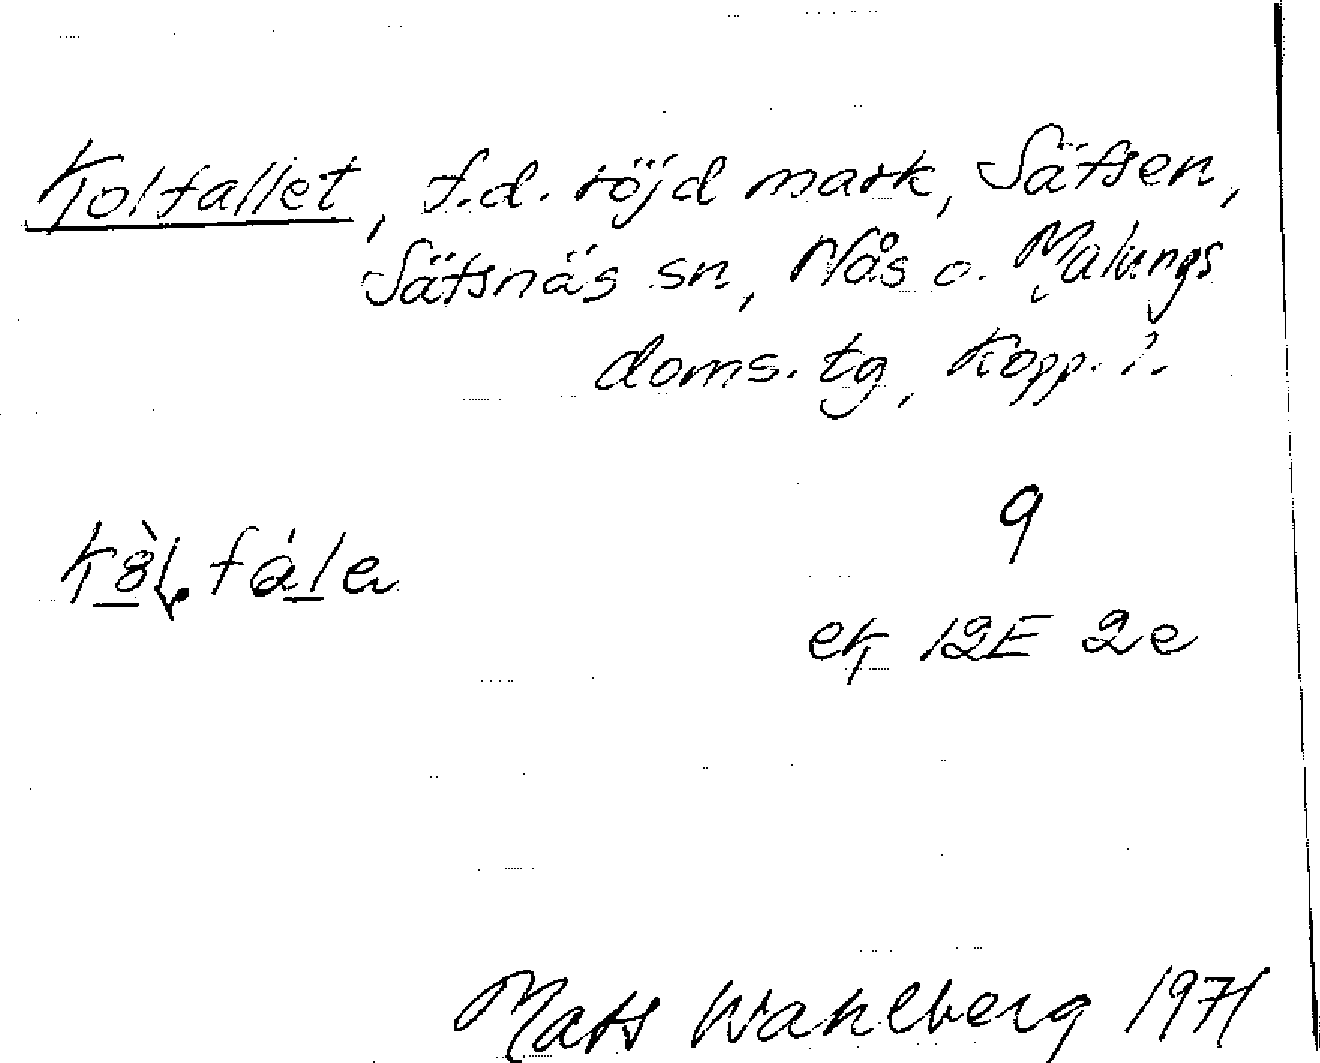 Kolfallet, f.d. röjd mark, Sätsen,
Sätsnäs sn, Nås o. Malungs
doms. tg, Kopp. l.
9
ek 12E 2e
Mats Wahlberg 1971